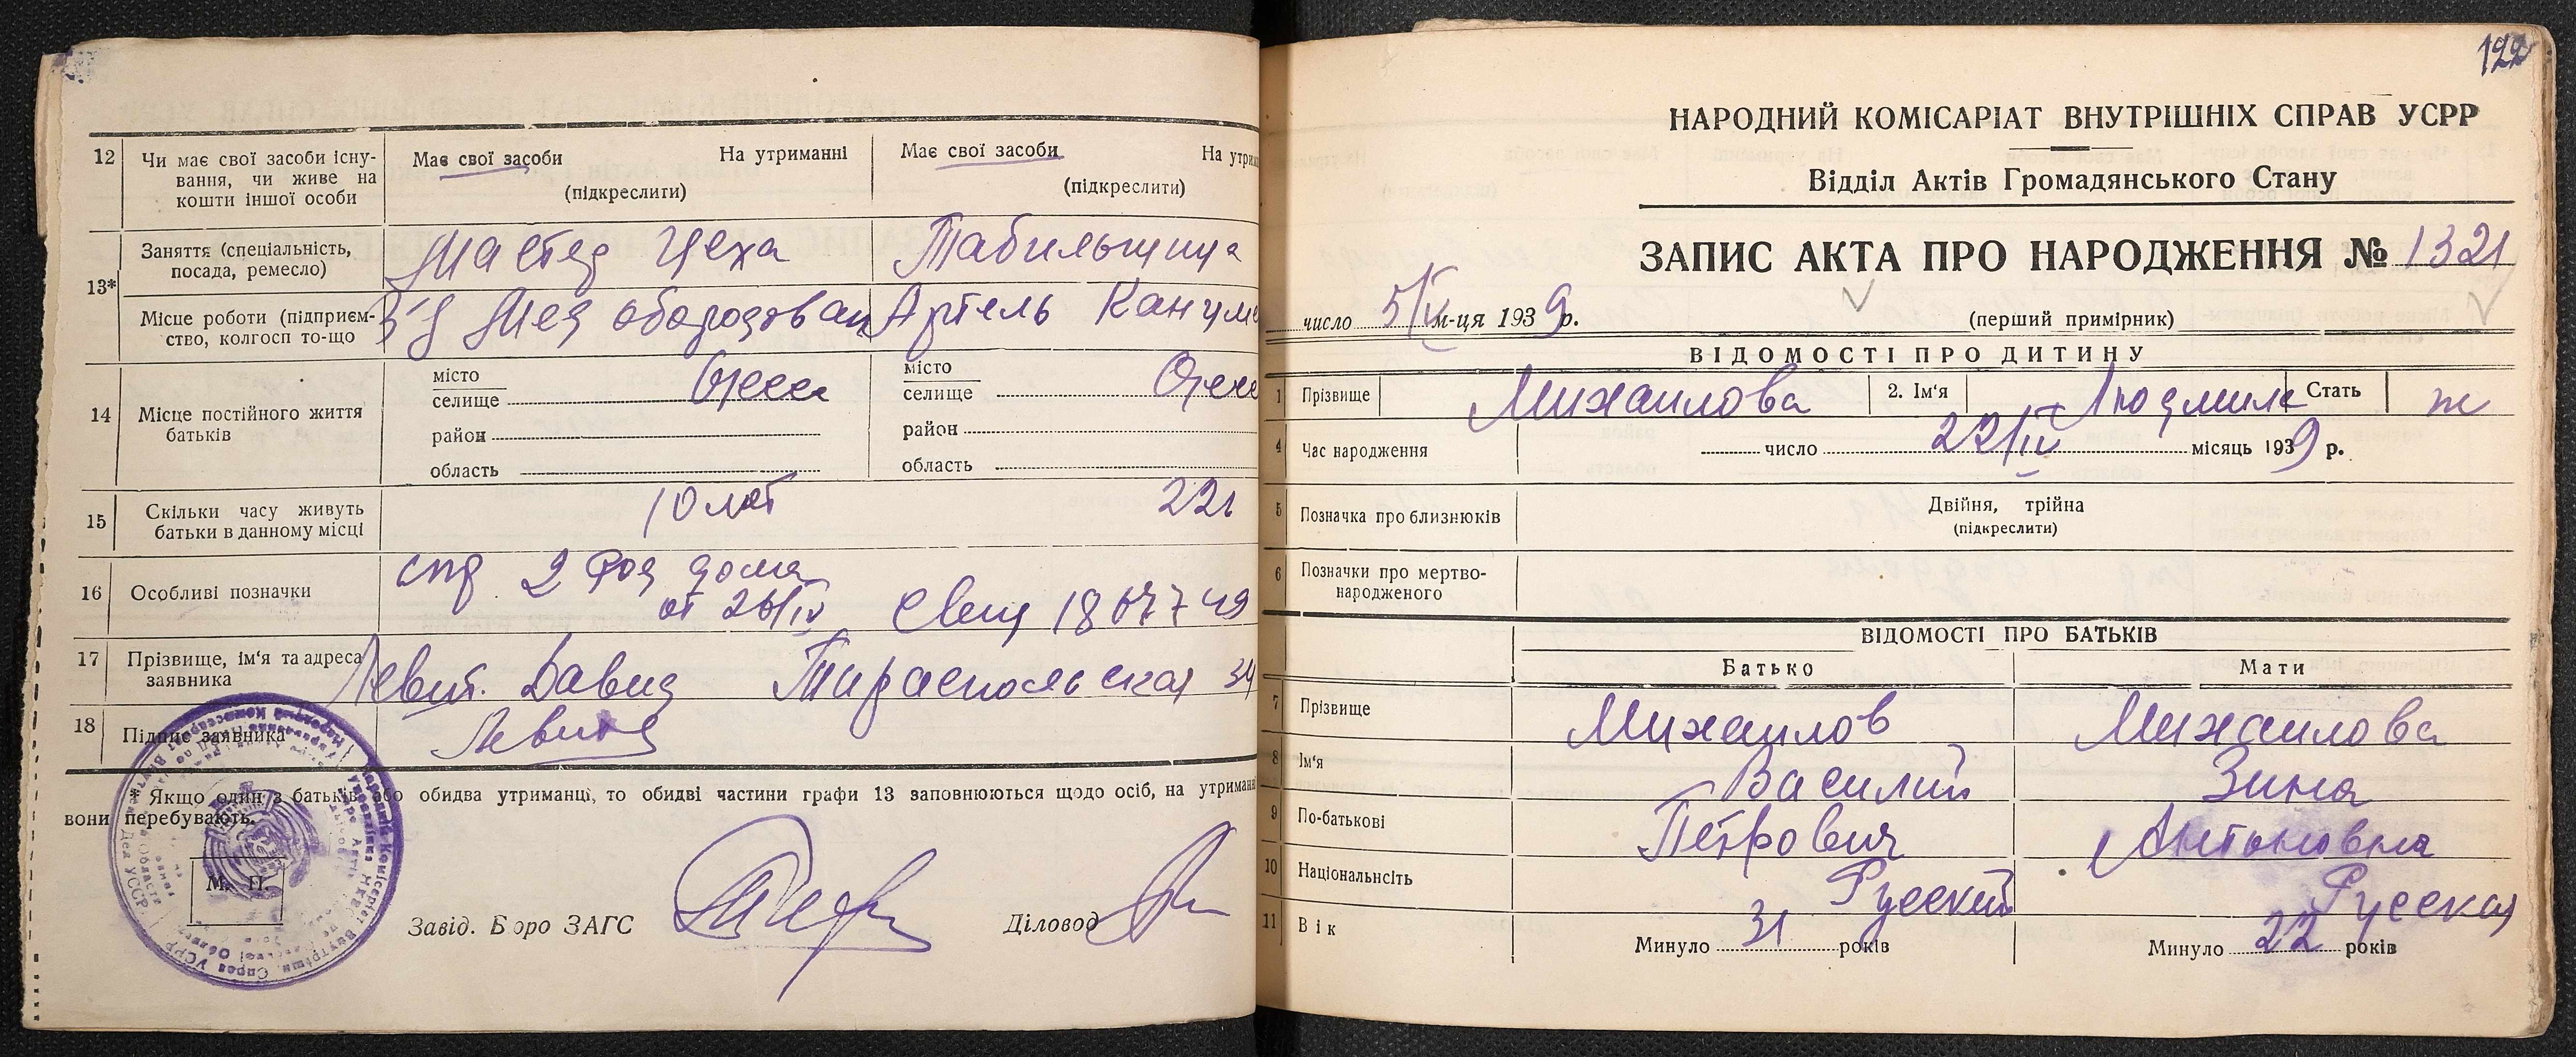 12
Чи має свої засоби існу-
вання, чи живе на
кошти іншої особи
Має свої засоби На утриманні
(підкреслити)
Має свої засоби На утрим
(підкреслити)
13*
Заняття (спеціальність,
посада, ремесло)
Мастер Цеха
Табильщица
Місце роботи (підприєм-
ство, колгосп то-що
Артель
14
Місце постійного життя
батьків
місто
селище Одесса
район
область
місто
селище Одесс
район
область
15
Скільки часу живуть
батьки в данному місці
10 лет
22г
16
Особливі позначки
спр 2 Род дома
от 26/IV
17
Прізвище, ім'я та адреса
заявника
Левит. Давид Тираспольская 34
18
Підпис заявника
* Якщо один з батьків або обидва утриманці, то обидві частини графи 13 заповнюються щодо осіб, на утриманн
вони перебувають.
М. П.
Завід. Бюро ЗАГС
Діловод
122
НАРОДНИЙ КОМІСАРІАТ ВНУТРІШНІХ СПРАВ УСРР
Відділ Актів Громадянського Стану
ЗАПИС АКТА ПРО НАРОДЖЕННЯ № 1321
число 5/V м-ця 1939 р.
(перший примірник)
ВІДОМОСТІ ПРО ДИТИНУ
1 Прізвище Михайлова 2. Ім'я Людмила Стать ж
4 Час народження число 22/IV місяць 1939 р.
5 Позначка про близнюків Двійня, трійна
(підкреслити)
6 Позначки про мертво-
народженого
ВІДОМОСТІ ПРО БАТЬКІВ
Батько Мати
7 Прізвище Михайлов Михайлова
8 Ім'я Василий Зина
9 По-батькові Петрович Антоновна
10 Національнсіть Русский Русская
11 Вік Минуло 31 років Минуло 22 років